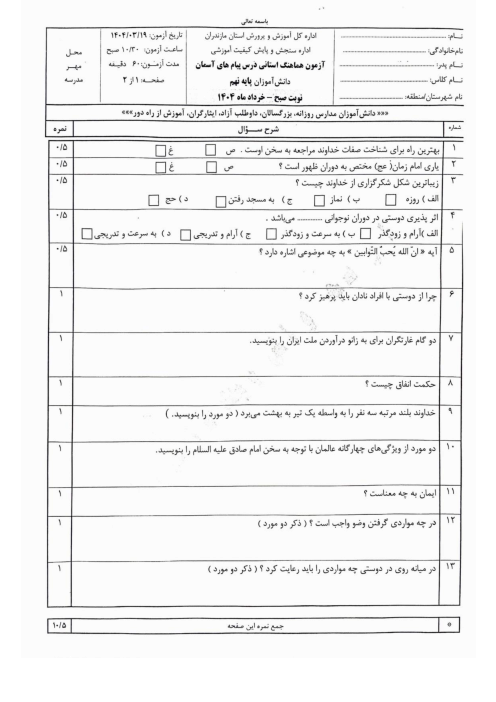 باسمه تعالی
نام:
نام‌خانوادگی:
نام پدر:
نام کلاس:
نام شهرستان/منطقه:
اداره کل آموزش و پرورش استان مازندران
اداره سنجش و پایش کیفیت آموزشی
آزمون هماهنگ استانی درس پیام های آسمان
دانش‌آموزان پایه نهم
نوبت صبح - خرداد ماه ۱۴۰۴
تاریخ آزمون: ۱۴۰۴/۰۳/۱۹
ساعت آزمون: ۱۰/۳۰ صبح
مدت آزمون: ۶۰ دقیقه
صفحه: ۱ از ۲
محل
مهر
مدرسه
««« دانش‌آموزان مدارس روزانه، بزرگسالان، داوطلب آزاد، ایثارگران، آموزش از راه دور»»»
شماره شرح سؤال نمره
۱ بهترین راه برای شناخت صفات خداوند مراجعه به سخن اوست . ص غ ۰/۵
۲ یاری امام زمان( عج) مختص به دوران ظهور است ؟ ص غ ۰/۵
۳ زیباترین شکل شکرگزاری از خداوند چیست ؟ ۰/۵
الف ) روزه ب ) نماز ج ) به مسجد رفتن د ) حج
۴ اثر پذیری دوستی در دوران نوجوانی ............ می‌باشد . ۰/۵
الف )آرام و زودگذر ب ) به سرعت و زودگذر ج ) آرام و تدریجی د ) به سرعت و تدریجی
۵ آیه « انّ الله یُحبُّ التّوابین » به چه موضوعی اشاره دارد ؟ ۰/۵
۶ چرا از دوستی با افراد نادان باید پرهیز کرد ؟ ۱
۷ دو گام غارتگران برای به زانو درآوردن ملت ایران را بنویسید. ۱
۸ حکمت انفاق چیست ؟ ۱
۹ خداوند بلند مرتبه سه نفر را به واسطه یک تیر به بهشت می‌برد ( دو مورد را بنویسید. ) ۱
۱۰ دو مورد از ویژگی‌های چهارگانه عالمان با توجه به سخن امام صادق علیه السلام را بنویسید. ۱
۱۱ ایمان به چه معناست ؟ ۱
۱۲ در چه مواردی گرفتن وضو واجب است ؟ ( ذکر دو مورد ) ۱
۱۳ در میانه روی در دوستی چه مواردی را باید رعایت کرد ؟ ( ذکر دو مورد ) ۱
* جمع نمره این صفحه ۱۰/۵